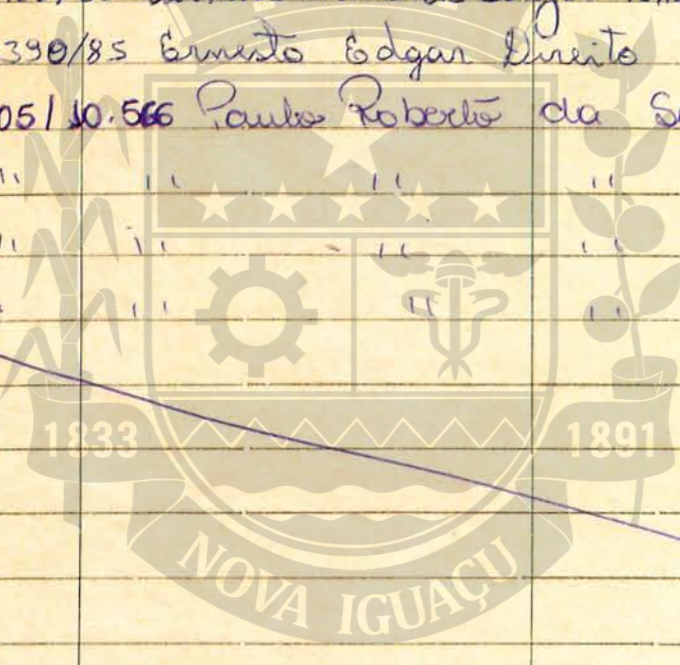 390/85 Ernesto Edgar Direito
05/10.566 Paulo Roberto da
" " " "
" " " "
" " " "
1833 1891
NOVA IGUAÇU